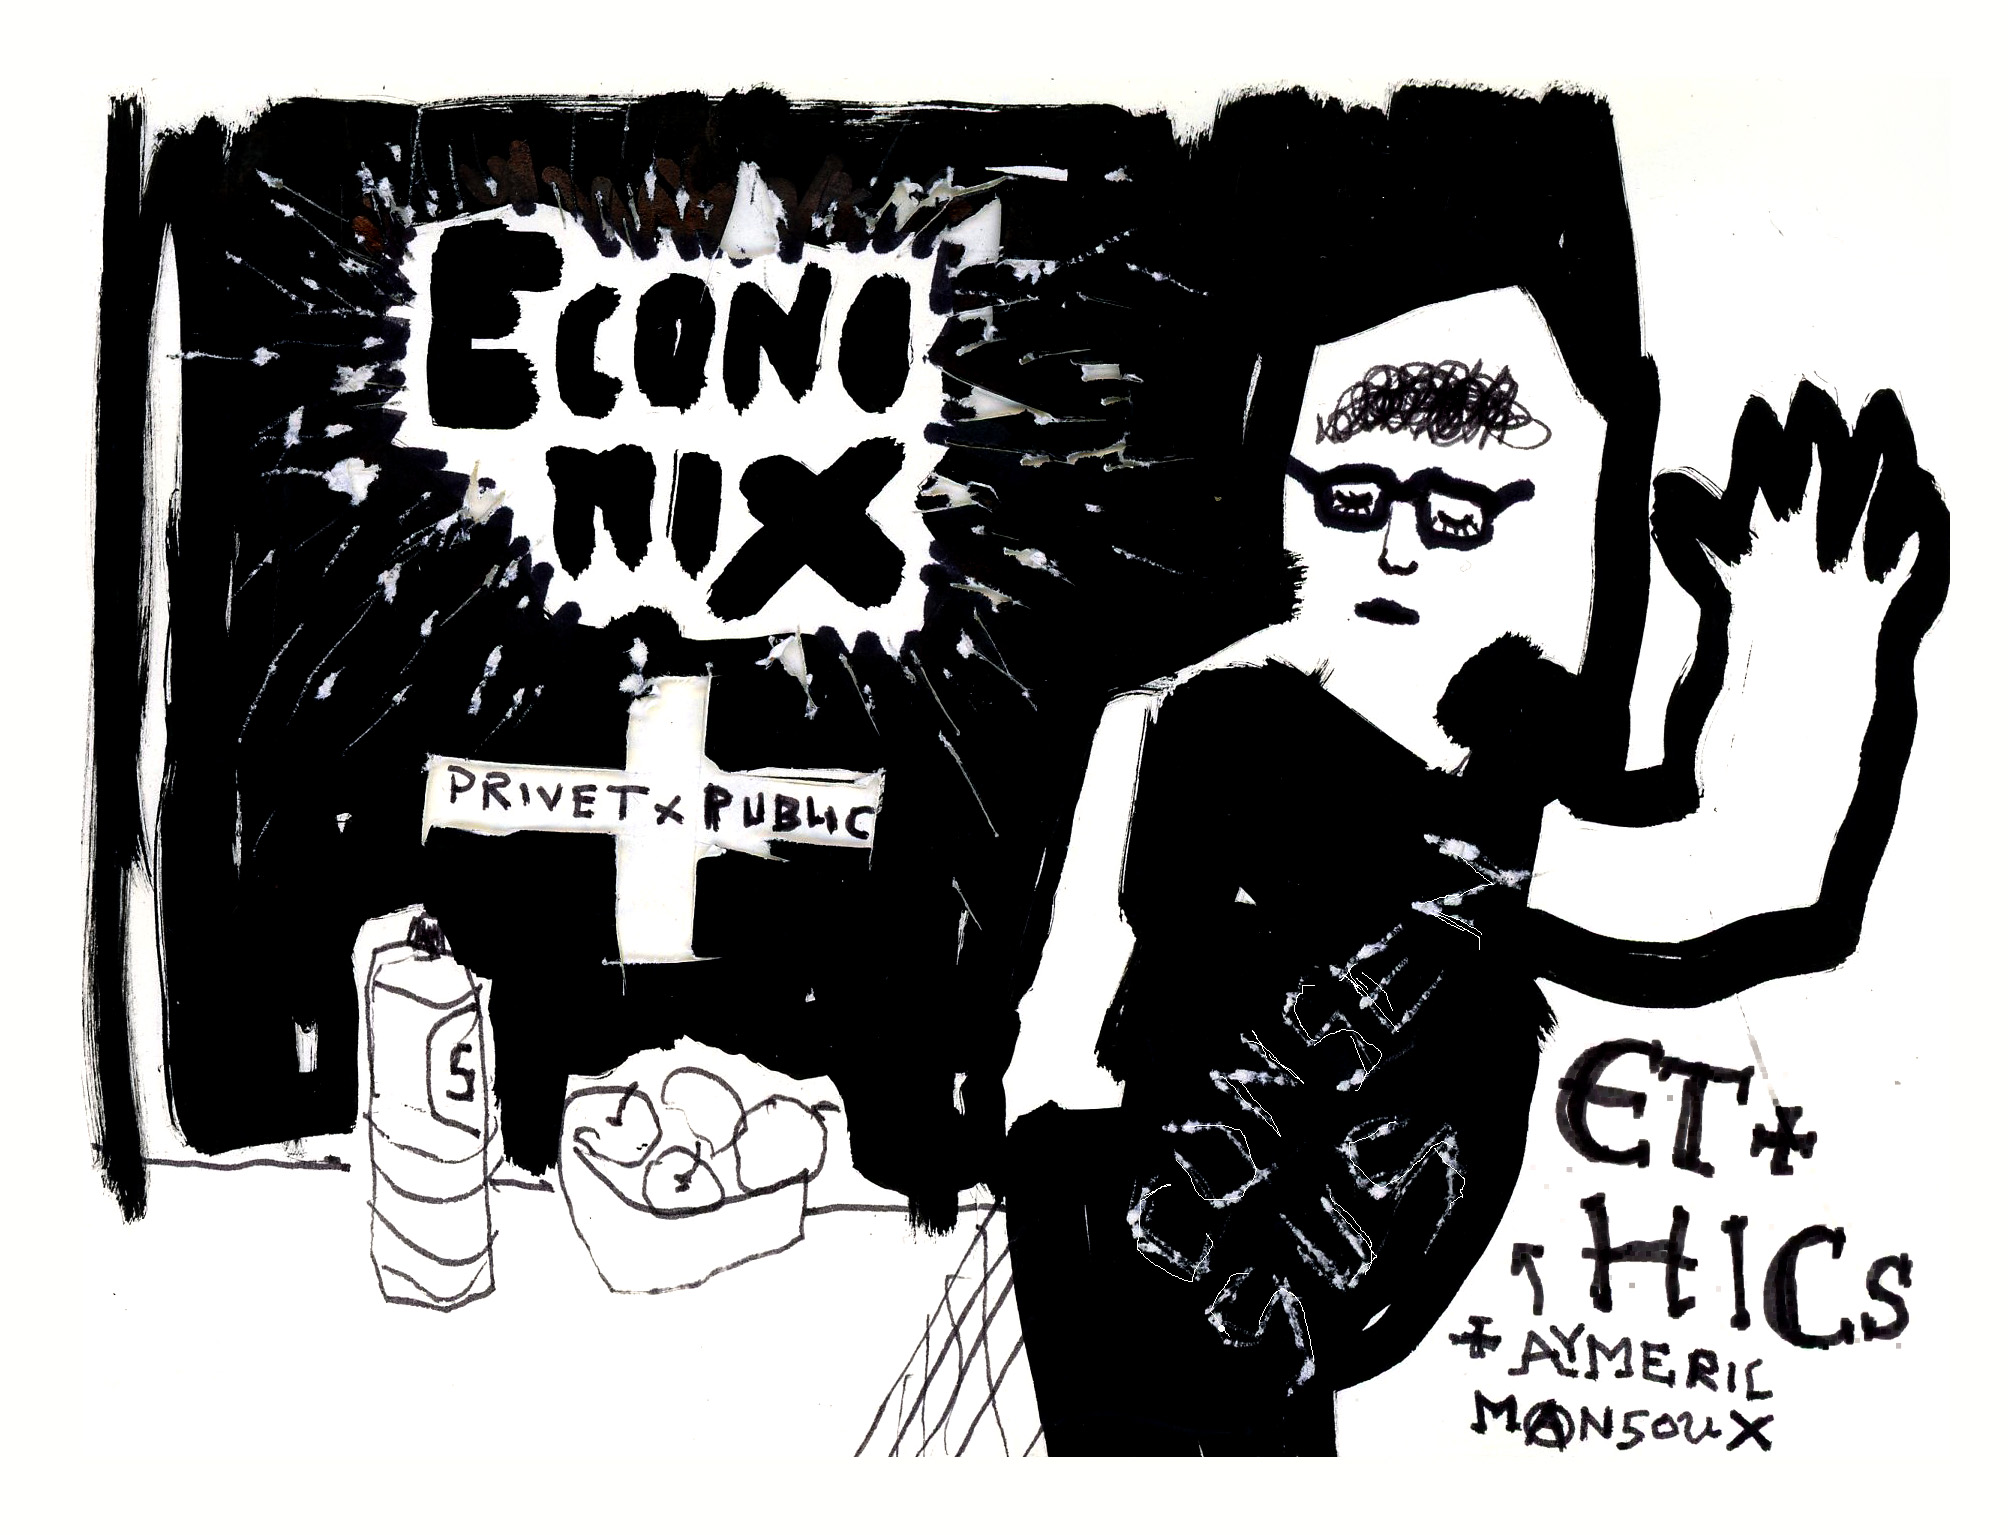 ECONO
MIX
PRIVET x PUBLIC
S
CONSEN
SUS
ET+
HICS
+ AYMERIC
MANSOUX